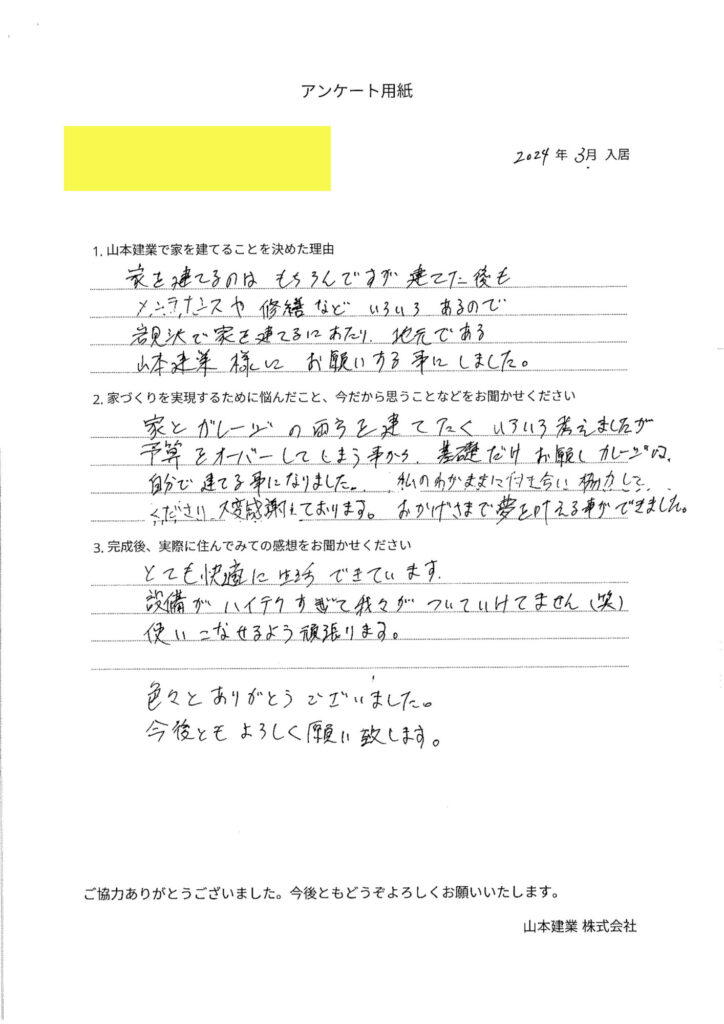 アンケート用紙
2024 年 3月 入居
1. 山本建業で家を建てることを決めた理由
家を建てるのは もちろんですが 建てた後も
メンテナンスや 修繕など いろいろ あるので
岩見沢で家を建てるにあたり、地元である
山本建業 様に お願いする事にしました。
2. 家づくりを実現するために悩んだこと、今だから思うことなどをお聞かせください
家とガレージの両方を建てたく いろいろ考えましたが
予算をオーバーしてしまう事から 基礎だけお願いしガレージは、
自分で建てる事になりました。私のわがままに付き合い 協力して
ください 大変感謝しております。おかげさまで夢を叶える事ができました。
3. 完成後、実際に住んでみての感想をお聞かせください
とても快適に生活できています。
設備がハイテクすぎて我々がついていけてません(笑)
使いこなせるよう頑張ります。
色々とありがとうございました。
今後ともよろしく願い致します。
ご協力ありがとうございました。今後ともどうぞよろしくお願いいたします。
山本建業 株式会社